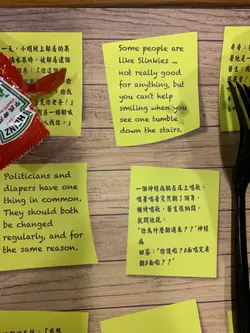 一天，小明爬上鄰居
水果時，被鄰居逮個
「你這個
HEINZ
Some people are
like Slinkies ...
not really good
for anything, but
you can't help
smiling when you
see one tumble
down the stairs.
Politicians and
diapers have one
thing in common.
They should both
be changed
regularly, and for
the same reason.
一個神經病躺在床上唱歌，
唱著唱著突然翻了個身，
繼續唱歌，醫生很納悶，
就問他說：
"你為什麼翻過來？？"神經
病
回答："你傻啦？？A面唱完要
翻B面啦？？"